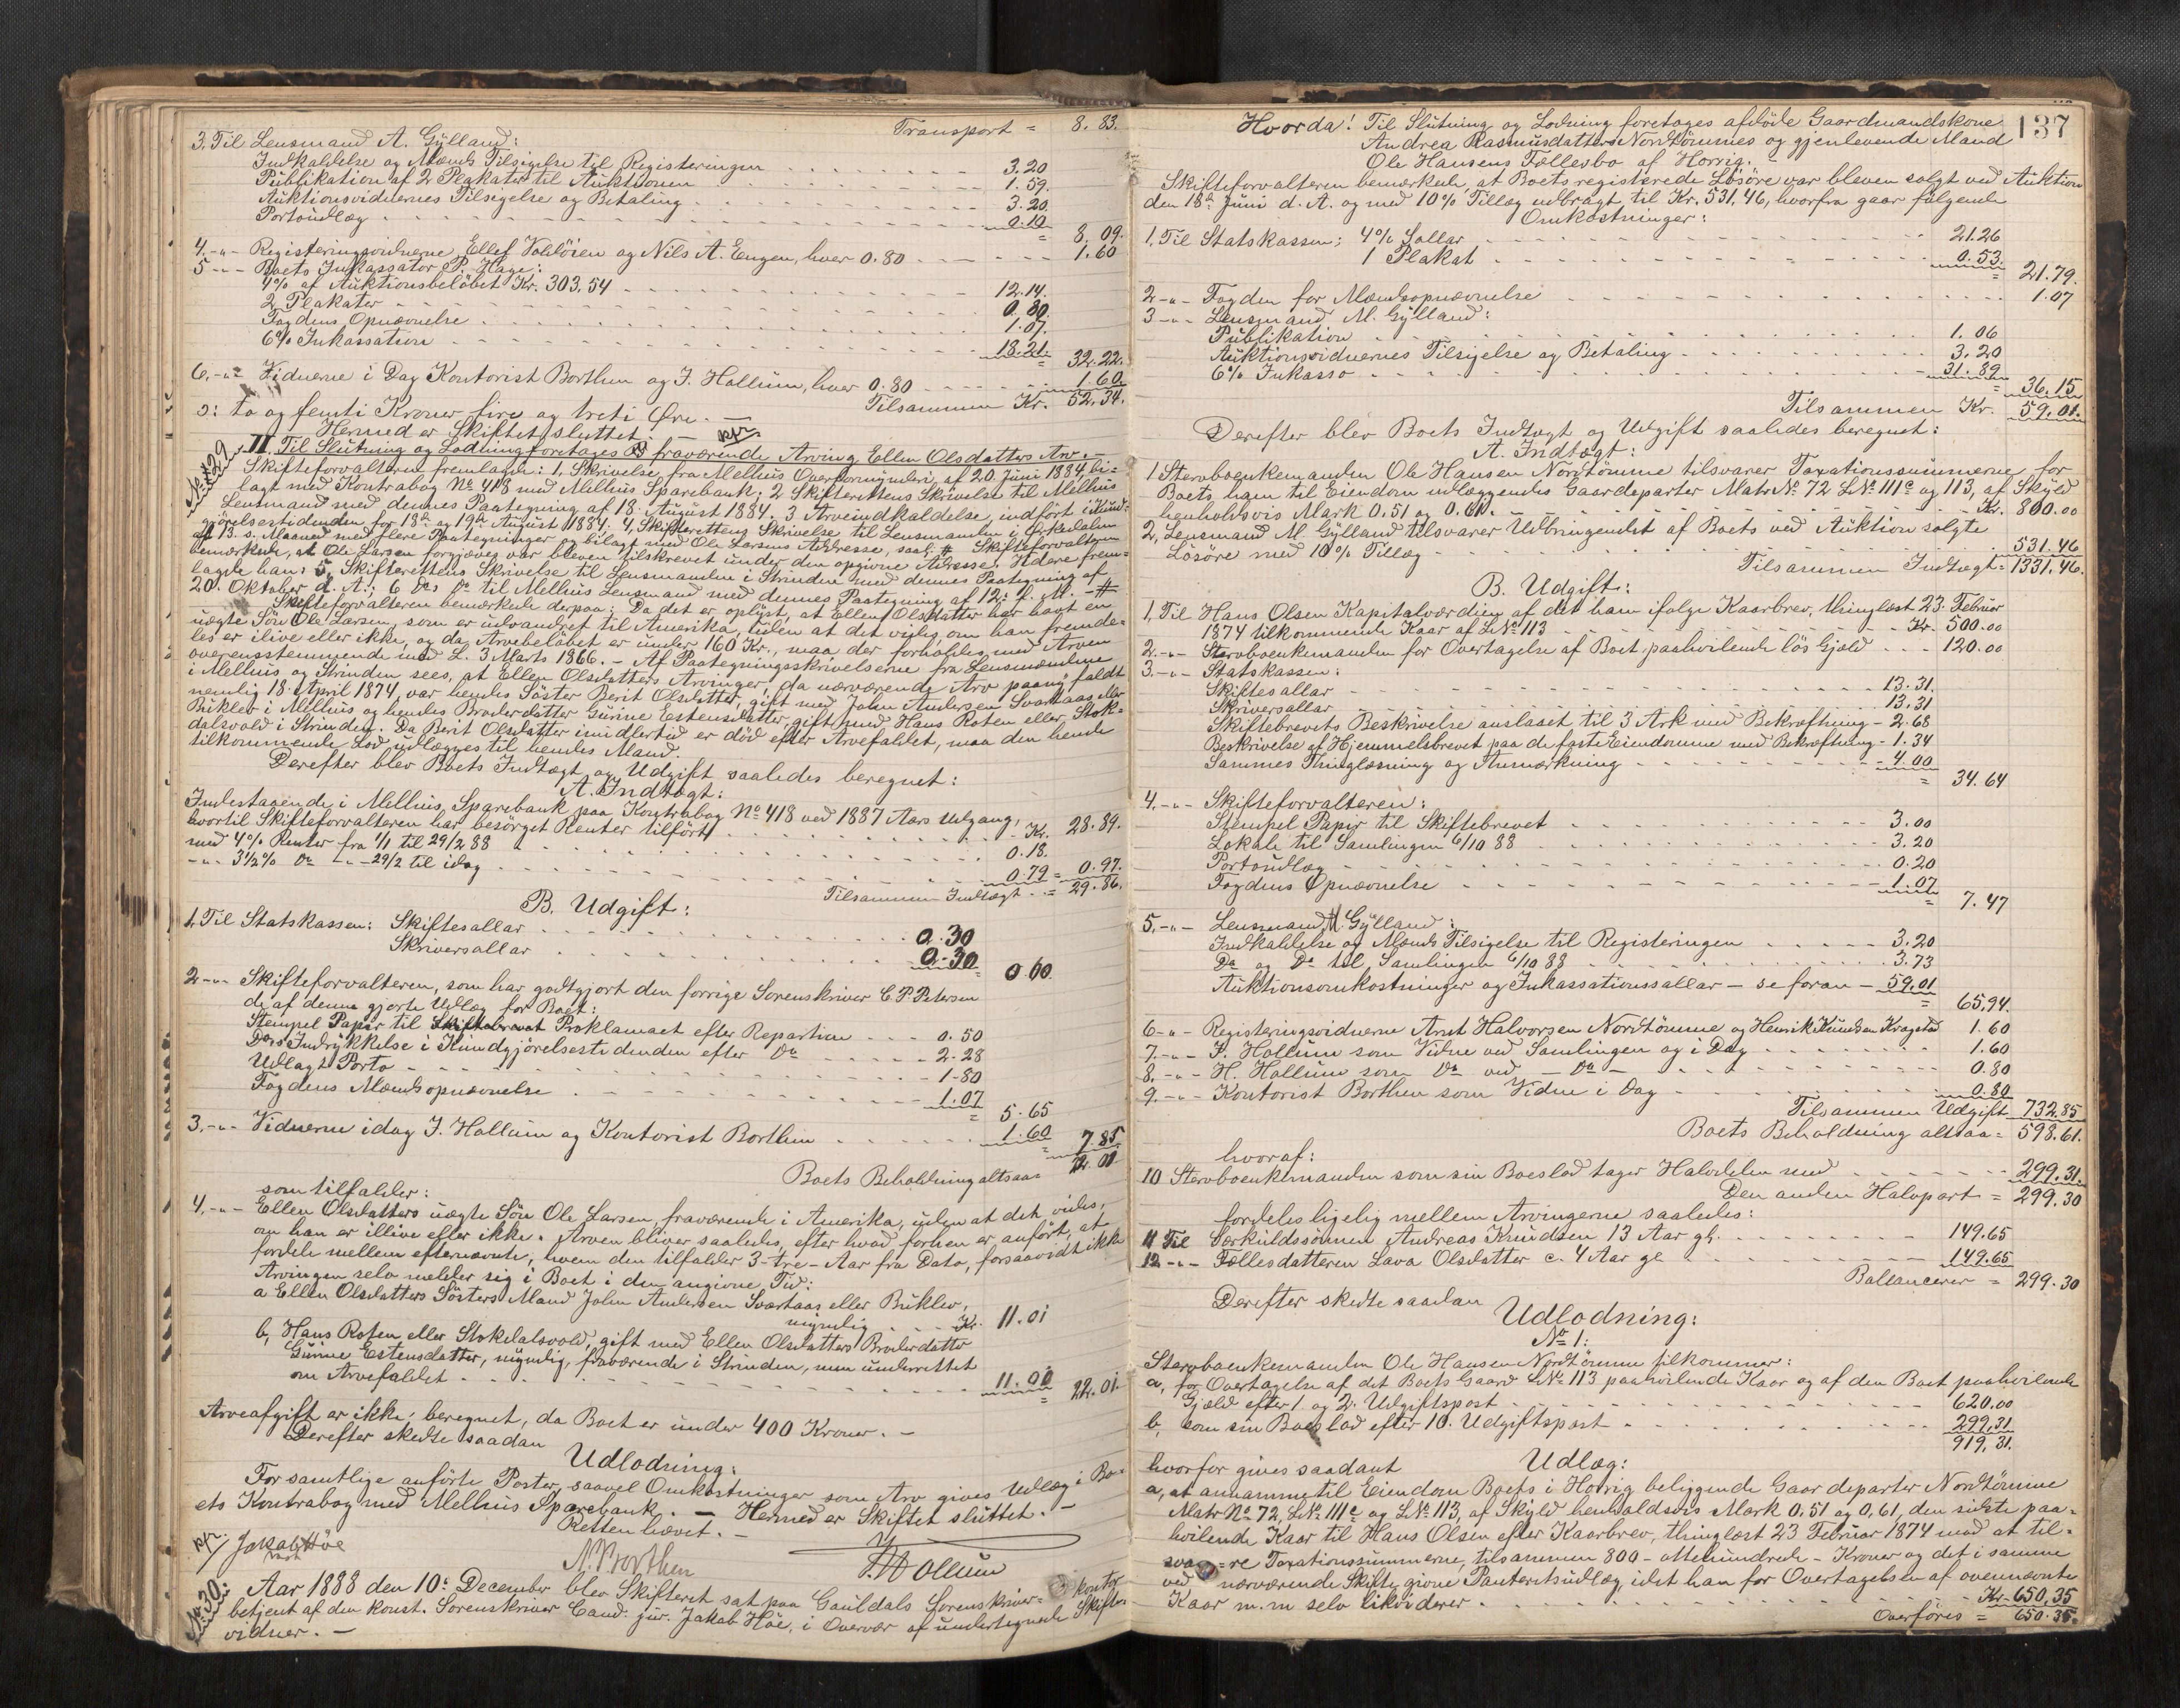 Transport = 8. 83.
3. Til Lensmand A. Gylland:
Indkaldelse og Mænds Tilsigelse til Registeringen 3.20
Publikation af 2 Plakater til Auktionen 1.59.
Auktionsvidnernes Tilsigelse og Betaling 3.20.
Portoudlæg 0.10
= 8. 09.
4. -"- Registeringsvidnerne Ellef Voldöien og Nils A. Engen, hver 0.80 1.60
5 -"- Boets Inkassator P. Hage:
4% af Auktionsbelöbet Kr. 303.54 12.14.
2 Plakater 0.80.
Fogdens Opnævnelse 1.07.
6% Inkassation 18.21.
= 32.22.
6. -"- Vidnerne i Dag Kontorist Borthen og J. Hollum, hver 0.80 1.60
Tilsammen Kr. 52.34.
ɔ: to og femti Kroner fire og treti Øre. —
Hermed er Skiftet sluttet. —
II. Til Slutning og Lodning foretages fraværende Arving Ellen Olsdatters Arv.
Skifteforvalteren fremlagde: 1. Skrivelse fra Melhus Overformynderi, af 20. Juni 1884 bi-
lagt med Kontrabog No 418 med Melhus Sparebank; 2 Skifterettens Skrivelse til Melhus
Lensmand med dennes Paategning af 18. August 1884. 3 Arveindkaldelse, indfört i Kund-
gjörelsestidenden for 18de og 19de August 1884. 4, Skifterettens Skrivelse til Lensmanden i Orkedalen
af 13. s. Maaned med flere Paategninger og bilagt med Ole Larsens Addresse, saal. # Skifteforvalteren
bemærkede, at Ole Larsen forgjæves var bleven tilskrevet under den opgivne Adresse. Videre frem-
lagde han: 5, Skifterettens Skrivelse til Lensmanden i Strinden med dennes Paategning af
20. Oktober d. A.; 6 Ds Do til Melhus Lensmand med dennes Paategning af 12. f. M. - #
Skifteforvalteren bemærkede derpaa: Da det er oplyst, at Ellen Olsdatter har havt en
uægte Sön Ole Larsen, som er udvandret til Amerika, uden at det vides, om han fremde-
les er ilive eller ikke, og da Arvebelöbet er under 160 Kr., maa der forholdes med Arven
overensstemmende med L. 3 Marts 1866. - Af Paategningsskrivelserne fra Lensmændene
i Melhus og Strinden sees, at Ellen Olsdatters Arvinger, da nærværende Arv paany faldt
nemlig 18. April 1874, var hendes Söster Berit Olsdatter, gift med John Andersen Svartaas eller
Buklev i Melhus og hendes Broderdatter Gurine Estensdatter gift med Hans Roten eller Stok-
dalsvold i Strinden. Da Berit Olsdatter imidlertid er död efter Arvefaldet, maa den hende
tilkommende Lod udlægges til hendes Mand.
Derefter blev Boets Indtægt og Udgift saaledes beregnet:
A. Indtægt:
Indestaaende i Melhus Sparebank paa Kontrabog No 418 ved 1887 Aars Udgang,
hvortil Skifteforvalteren har besörget Renter tilfört Kr. 28.89.
med 4% Renter fra 1/1 til 29/2 88 0.18.
-"- 3 1/2% Do -"- 29/2 til idag 0.79 = 0.97.
Tilsammen Indtægt = 29.86.
B. Udgift:
1. Til Statskassen: Skiftesallar 0.30
Skriversallar 0.30
= 0.60
2 -"- Skifteforvalteren, som har godtgjort den forrige Sorenskriver C. P. Petersen
de af denne gjorte Udlæg for Boet:
Stempel Papir til Proklamaet efter Repartion 0.50
Dets Indrykkelse i Kundgjörelsestidenden efter Do 2.28
Udlagt Porto 1.80
Fogdens Mændsopnævnelse 1.07
= 5.65
3. -"- Vidnerne idag J. Hollum og Kontorist Borthen 1.60 = 7.85
Boets Beholdning altsaa = 22.01
som tilfalder:
4. -"- Ellen Olsdatters uægte Sön Ole Larsen, fraværende i Amerika, uden at det vides,
om han er illive eller ikke. Arven bliver saaledes, efter hvad forhen er anfört, at
fordele mellem efternævnte, hvem den tilfalder 3-tre-Aar fra Dato, forsaavidt ikke
Arvingen selv melder sig i Boet i den angivne Tid:
a Ellen Olsdatters Sösters Mand John Andersen Svartaas eller Buklev,
myndig Kr. 11.01
b, Hans Roten eller Stokdalsvold, gift med Ellen Olsdatters Broderdatter
Gurine Estensdatter, myndig, fraværende i Strinden, men underrettet
om Arvefaldet 11.00
= 22.01.
Arveafgift er ikke beregnet, da Boet er under 400 Kroner. -
Derefter skedte saadan
Udlodning:
For samtlige anförte Poster, saavel Omkostninger som Arv gives Udlæg i Bo-
ets Kontrabog med Melhus Sparebank. — Hermed er Skiftet sluttet. -
Retten hævet. -
Jakob Höe
N. Borthen
J. Hollum
No 30.
Aar 1888 den 10. December blev Skifteret sat paa Gauldals Sorenskriver- kontor
betjent af den konst. Sorenskriver Cand. jur. Jakob Höe, i Overvær af undertegnede Skifte-
vidner. -
137
Hvorda! Til Slutning og Lodning foretages afdöde Gaardmandskone
Andrea Rasmusdatters Nordtömmes og gjenlevende Mand
Ole Hansens Fællesbo af Horrig. -
Skifteforvalteren bemærkede, at Boets registrerede Lösöre var bleven solgt ved Auktion
den 18de Juni d. A. og med 10% Tillæg udbragt til Kr. 531.46, hvorfra gaar fölgende
Omkostninger:
1, Til Statskassen: 4% Sallar 21.26
1 Plakat 0.53.
= 21.79.
2 -"- Fogden for Mændsopnævnelse 1.07
3 -"- Lensmand M. Gylland:
Publikation 1.06
Auktionsvidnernes Tilsigelse og Betaling 3.20
6% Inkasso 31.89
= 36.15
Tilsammen Kr. 59.01.
Derefter blev Boets Indtægt og Udgift saaledes beregnet:
A. Indtægt:
1 Stervboenkemanden Ole Hansen Nordtömme tilsvarer Taxationssummerne for
Boets ham til Eiendom udlæggendes Gaardeparter Matr No 72 LNo 111c og 113, af Skyld
henholdsvis Mark 0.51 og 0.61. Kr. 800.00
2, Lensmand M. Gylland tilsvarer Udbringendet af Boets ved Auktion solgte
Lösöre med 10% Tillæg 531.46
Tilsammen Indtægt = 1331.46.
B. Udgift:
1, Til Hans Olsen Kapitalværdien af det ham ifölge Kaarbrev, thinglæst 23. Februar
1874 tilkommende Kaar af LNo 113 Kr. 500.00
2. -"- Stervboenkemanden for Overtagelse af Boet paahvilende lös Gjæld 120.00
3. -"- Statskassen:
Skiftesallar 13.31.
Skriversallar 13.31
Skiftebrevets Beskrivelse anslaaet til 3 Ark med Bekræftning - 2.68
Beskrivelse af Hjemmelsbrevet paa de faste Eiendomme med Bekræftning - 1.34
Sammes Thinglæsning og Anmærkning 4.00
= 34.64
4. -"- Skifteforvalteren:
Stempel Papir til Skiftebrevet 3.00
Lokale til Samlingen 6/10 88 3.20
Portoudlæg 0.20
Fogdens Opnævnelse 1.07
= 7.47
5. -"- Lensmand M. Gylland:
Indkaldelse og Mænds Tilsigelse til Registeringen 3.20
Do og Do til Samlingen 6/10 88 3.73
Auktionsomkostninger og Inkassationssallar - se foran - 59.01
= 65,94.
6 -"- Registeringsvidnerne Arnt Halvorsen Nordtömme og Henrik Knudsen Kragstad 1.60
7. -"- J. Hollum som Vidne ved Samlingen og i Dag 1.60
8. -"- H. Hollum som Do ved - Do - 0.80
9. -"- Kontorist Borthen som Vidne i Dag 0.80
Tilsammen Udgift 732.85
Boets Beholdning altsaa = 598.61.
hvoraf:
10 Stervboenkemanden som sin Boeslod tager Halvdelen med 299.31.
Den anden Halvpart = 299.30
fordeles ligelig mellem Arvingerne saaledes:
11 Til Særkuldssönnen Andreas Knudsen 13 Aar gl. 149.65
12 -"- Fællesdatteren Lava Olsdatter c. 4 Aar gl 149.65
Ballancerer = 299.30
Derefter skedte saadan
Udlodning:
No 1:
Stervboenkemanden Ole Hansen Nordtömme tilkommer:
a, for Overtagelse af det Boets Gaard LNo 113 paahvilende Kaar og af den Boet paahvilende
Gjæld efter 1. og 2. Udgiftspost 620.00
b, Som sin Boeslod efter 10. Udgiftspost 299,31
919,31.
hvorfor gives saadant Udlæg:
a, at annamme til Eiendom Boets i Horrig beliggende Gaardeparter Nordtömme
Matr No 72, LNo 111c og LNo 113, af Skyld henholdsvis Mark 0,51 og 0,61, den sidste paa-
hvilende Kaar til Hans Olsen efter Kaarbrev, thinglæst 23 Februar 1874 mod at til-
svare Taxationssummerne, tilsammen 800 - ottehundrede - Kroner og det i samme
ved nærværende Skifte givne Panteretsudlæg, idet han for Overtagelsen af ovennævnte
Kaar m. m selv likviderer Kr. 650,35
Overföres = 650.35.